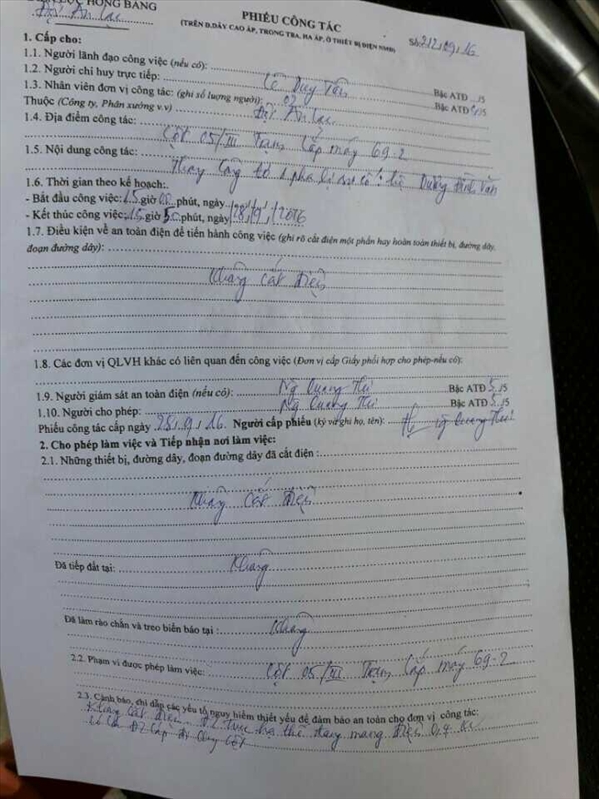 HỒNG BÀNG
PHIẾU CÔNG TÁC
Đội An Lạc
(TRÊN Đ.DÂY CAO ÁP, TRONG TBA, HẠ ÁP, Ở THIẾT BỊ ĐIỆN NMĐ)
Số: 212/09/16
1. Cấp cho:
1.1. Người lãnh đạo công việc (nếu có): Bậc ATĐ /5
1.2. Người chỉ huy trực tiếp: Lê Duy Tân Bậc ATĐ /5
1.3. Nhân viên đơn vị công tác: (ghi số lượng người): 02
Thuộc (Công ty, Phân xưởng v.v) Đội An Lạc
1.4. Địa điểm công tác:
Cột 05/III Trạm Cấp máy 69-2
1.5. Nội dung công tác:
Thay Công tơ 1 pha Dương Đình Văn
1.6. Thời gian theo kế hoạch:
- Bắt đầu công việc: 15 giờ phút, ngày 28/9/2016
- Kết thúc công việc: 15 giờ 30 phút, ngày
1.7. Điều kiện về an toàn điện để tiến hành công việc (ghi rõ cắt điện một phần hay hoàn toàn thiết bị, đường dây,
đoạn đường dây):
Không cắt điện
1.8. Các đơn vị QLVH khác có liên quan đến công việc (Đơn vị cấp Giấy phối hợp cho phép-nếu có):
1.9. Người giám sát an toàn điện (nếu có): Ng Quang Bậc ATĐ 5/5
1.10. Người cho phép: Ng Quang Bậc ATĐ 5/5
Phiếu công tác cấp ngày 28/9/16 Người cấp phiếu (ký và ghi họ, tên): Quang
2. Cho phép làm việc và Tiếp nhận nơi làm việc:
2.1. Những thiết bị, đường dây, đoạn đường dây đã cắt điện :
Không cắt điện
Đã tiếp đất tại: Không
Đã làm rào chắn và treo biển báo tại : Không
2.2. Phạm vi được phép làm việc: Cột 05/III Trạm Cấp máy 69-2
2.3. Cảnh báo, chỉ dẫn các yếu tố nguy hiểm thiết yếu để đảm bảo an toàn cho đơn vị công tác:
Không cắt điện - ĐZ trục hạ thế đang mang điện 0,4 KV